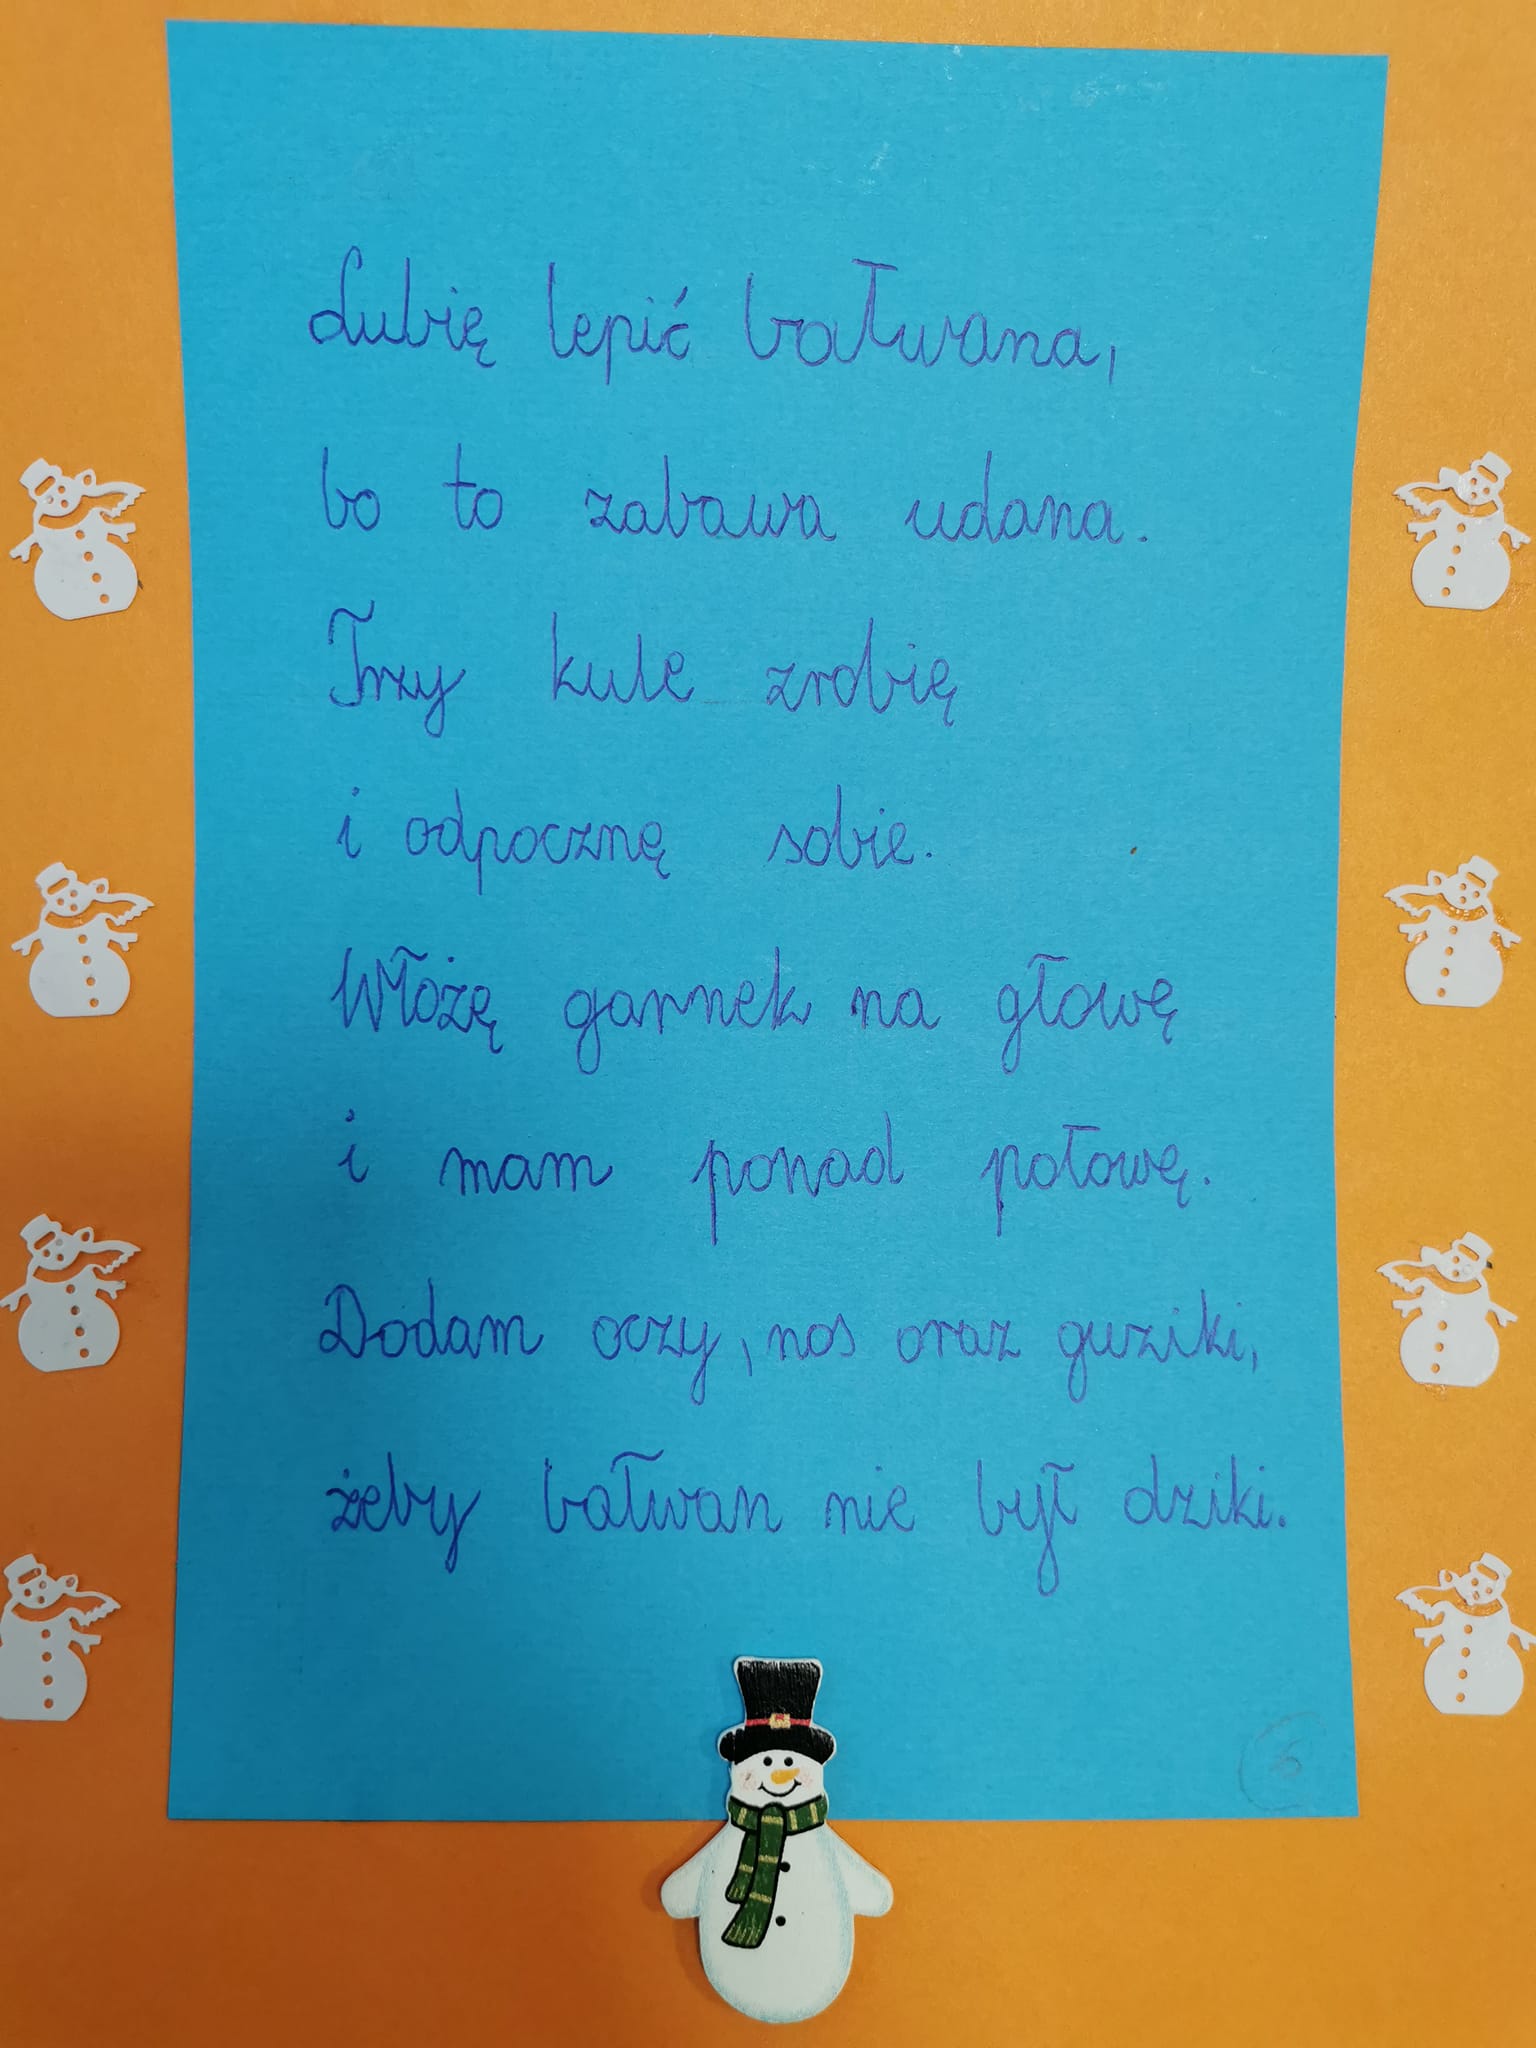 Lubię lepić bałwana,
bo to zabawa udana.
Trzy kule zrobię
i odpocznę sobie.
Włożę garnek na głowę
i mam ponad połowę.
Dodam oczy, nos oraz guziki,
żeby bałwan nie był dziki.